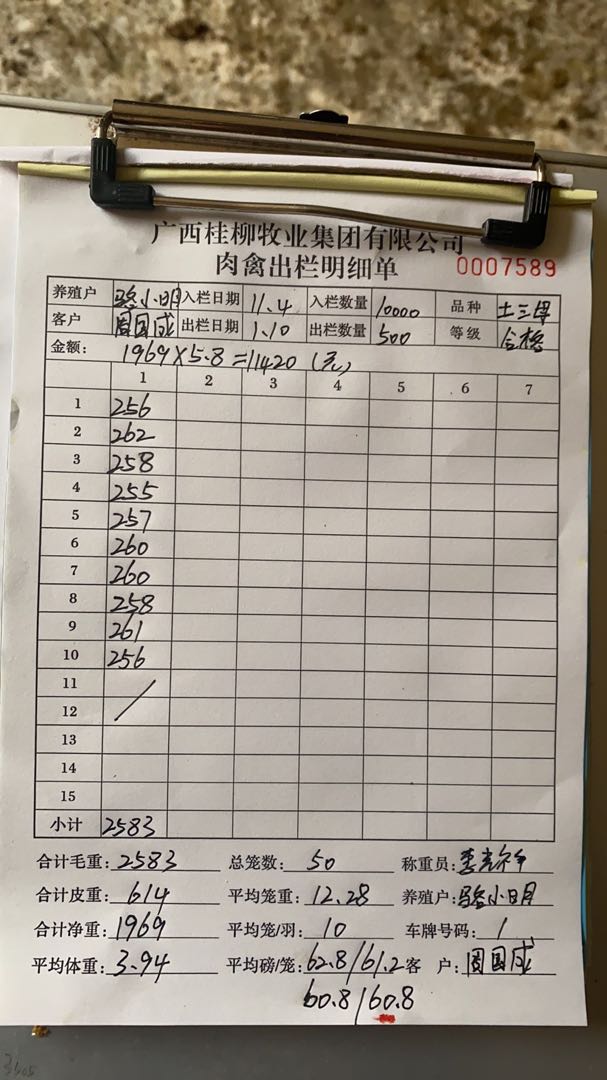 广西桂柳牧业集团有限公司
肉禽出栏明细单 0007589
养殖户 骆小明 入栏日期 11.4 入栏数量 10000 品种 土三号
客户 周国成 出栏日期 1.10 出栏数量 500 等级 合格
金额: 1969×5.8=11420 (元)
1 2 3 4 5 6 7
1 256
2 262
3 258
4 255
5 257
6 260
7 260
8 258
9 261
10 256
11
12
13
14
15
小计 2583
合计毛重: 2583 总笼数: 50 称重员: 李
合计皮重: 614 平均笼重: 12.28 养殖户: 骆小明
合计净重: 1969 平均笼/羽: 10 车牌号码: 1
平均体重: 3.94 平均磅/笼: 62.8/61.2 客 户: 周国成
60.8/60.8